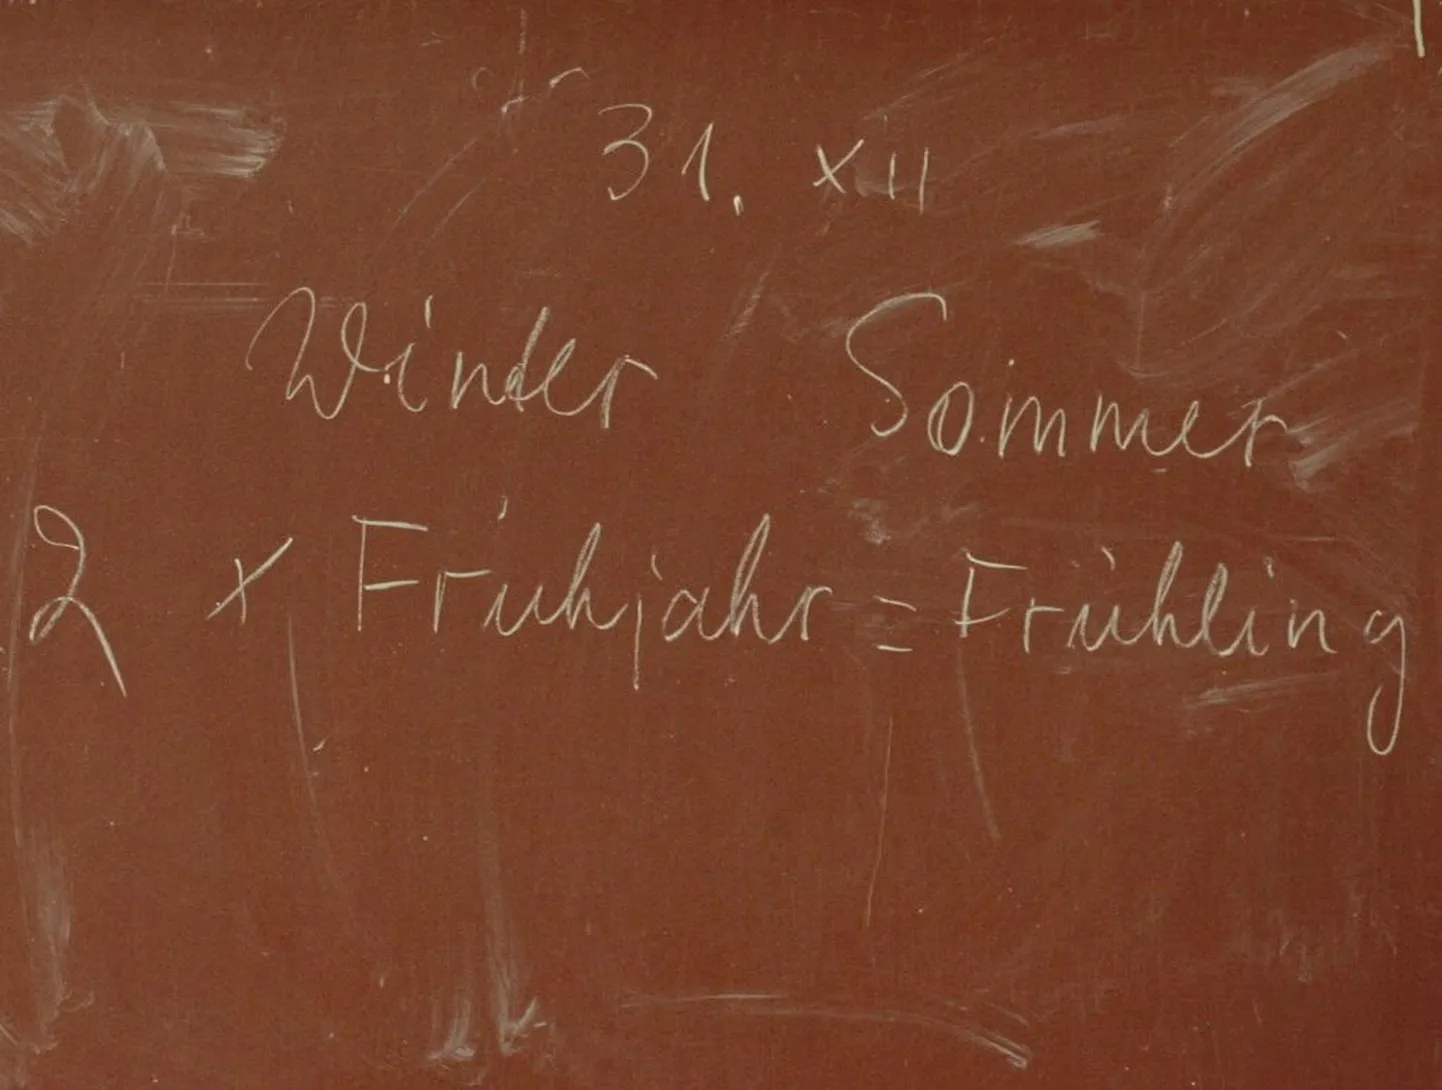 31. XII
Winter Sommer
2 x Frühjahr = Frühling